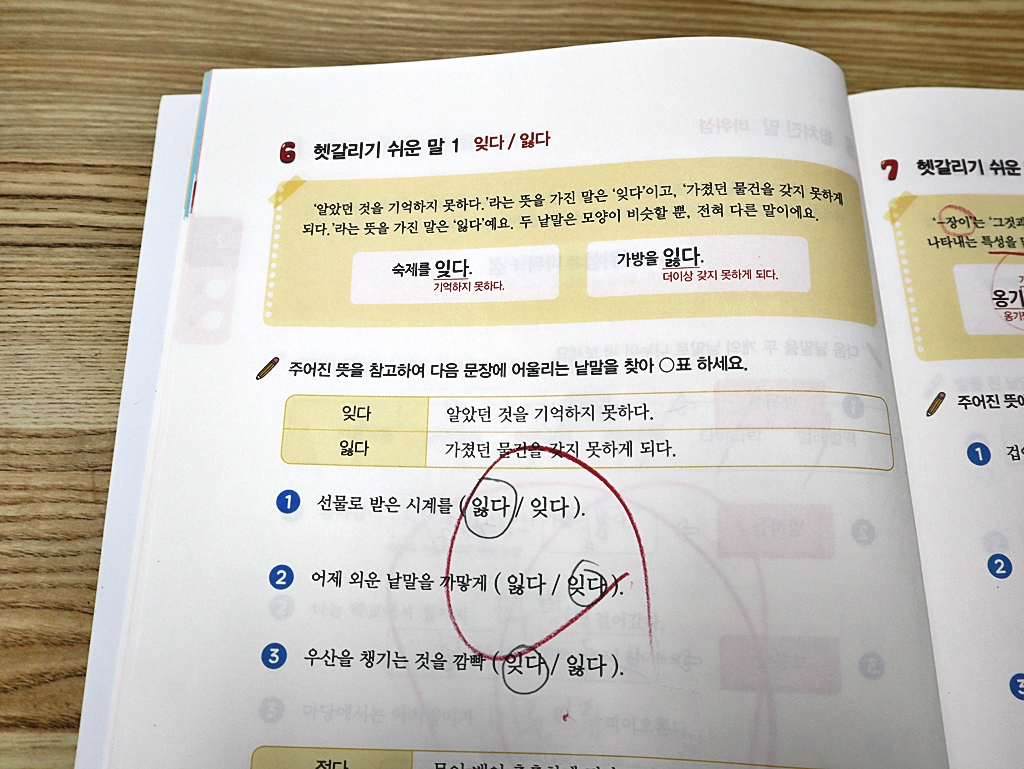 6 헷갈리기 쉬운 말 1 잊다 / 잃다
‘알았던 것을 기억하지 못하다.’라는 뜻을 가진 말은 ‘잊다’이고, ‘가졌던 물건을 갖지 못하게
되다.’라는 뜻을 가진 말은 ‘잃다’예요. 두 낱말은 모양이 비슷할 뿐, 전혀 다른 말이에요.
숙제를 잊다.
기억하지 못하다.
가방을 잃다.
더이상 갖지 못하게 되다.
주어진 뜻을 참고하여 다음 문장에 어울리는 낱말을 찾아 ○표 하세요.
잊다 알았던 것을 기억하지 못하다.
잃다 가졌던 물건을 갖지 못하게 되다.
1 선물로 받은 시계를 ( 잃다 / 잊다 ).
2 어제 외운 낱말을 까맣게 ( 잃다 / 잊다 ).
3 우산을 챙기는 것을 깜빡 ( 잊다 / 잃다 ).
7 헷갈리기 쉬운
‘-장이’는 ‘그것과
나타내는 특성을
옹기
주어진 뜻에
1
2
3